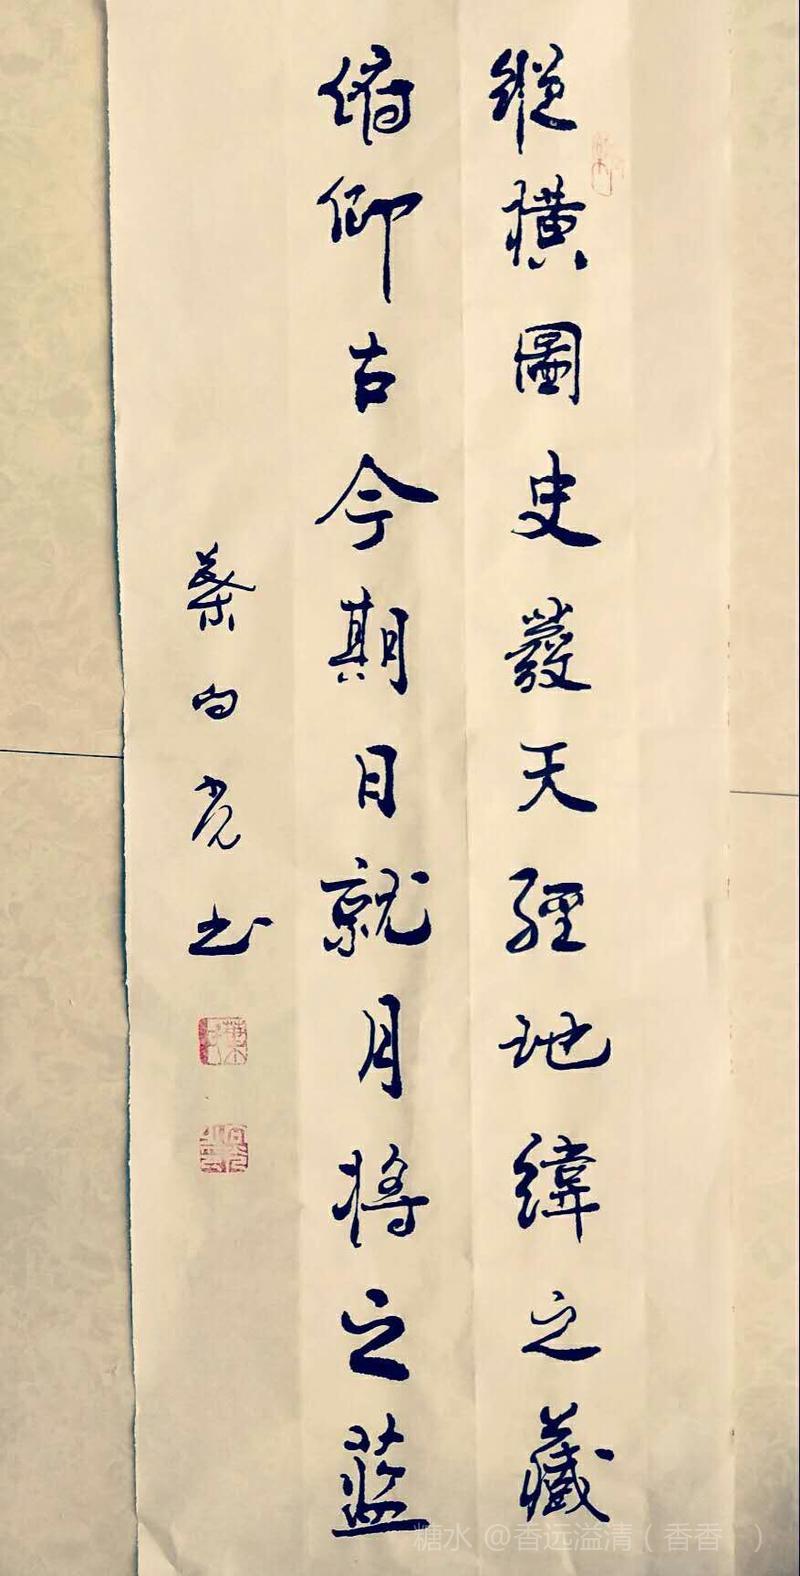 縱橫圖史發天經地緯之藏
俯仰古今期日就月將之蓝
葉向光书
糖水 @香远溢清（香香 ）